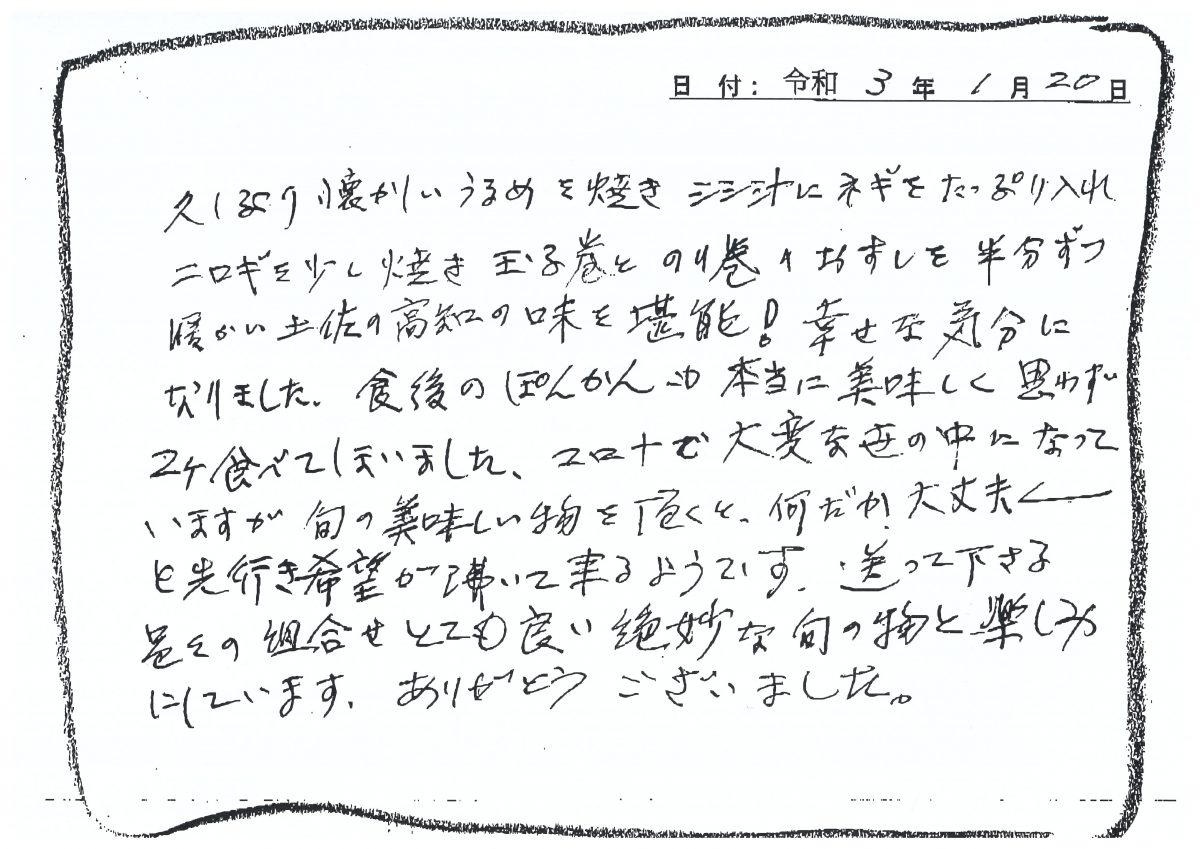 日付: 令和 3 年 1 月 20 日
久しぶり懐かしいうるめを焼きシシ汁にネギをたっぷり入れ
ニロギを少し焼き玉子巻とのり巻々おすしを半分ずつ
暖かい土佐の高知の味を堪能!幸せな気分に
なりました。食後のぽんかんも本当に美味しく思わず
2ケ食べてしまいました、コロナで大変な世の中になって
いますが旬の美味しい物を頂くと、何だか大丈夫く
と先行き希望が沸いて来るようです。送って下さる
色々の組合せとても良い絶妙な旬の物と楽しみ
にしています。ありがとうございました。